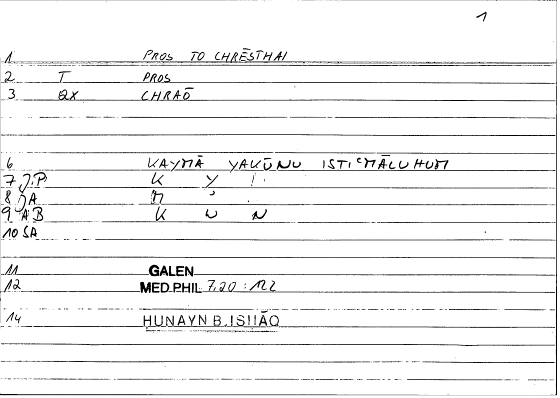 1
1 PROS TO CHRĒSTHAI
2 T PROS
3 QX CHRAŌ
6 KAYMĀ YAKŪNU ISTIʿMĀLUHUM
7 J.P K Y I
8 JA M
9 AB K W N
10 SA
11 GALEN
12 MED.PHIL 7,20 : 122
14 HUNAYN B. ISḤĀQ